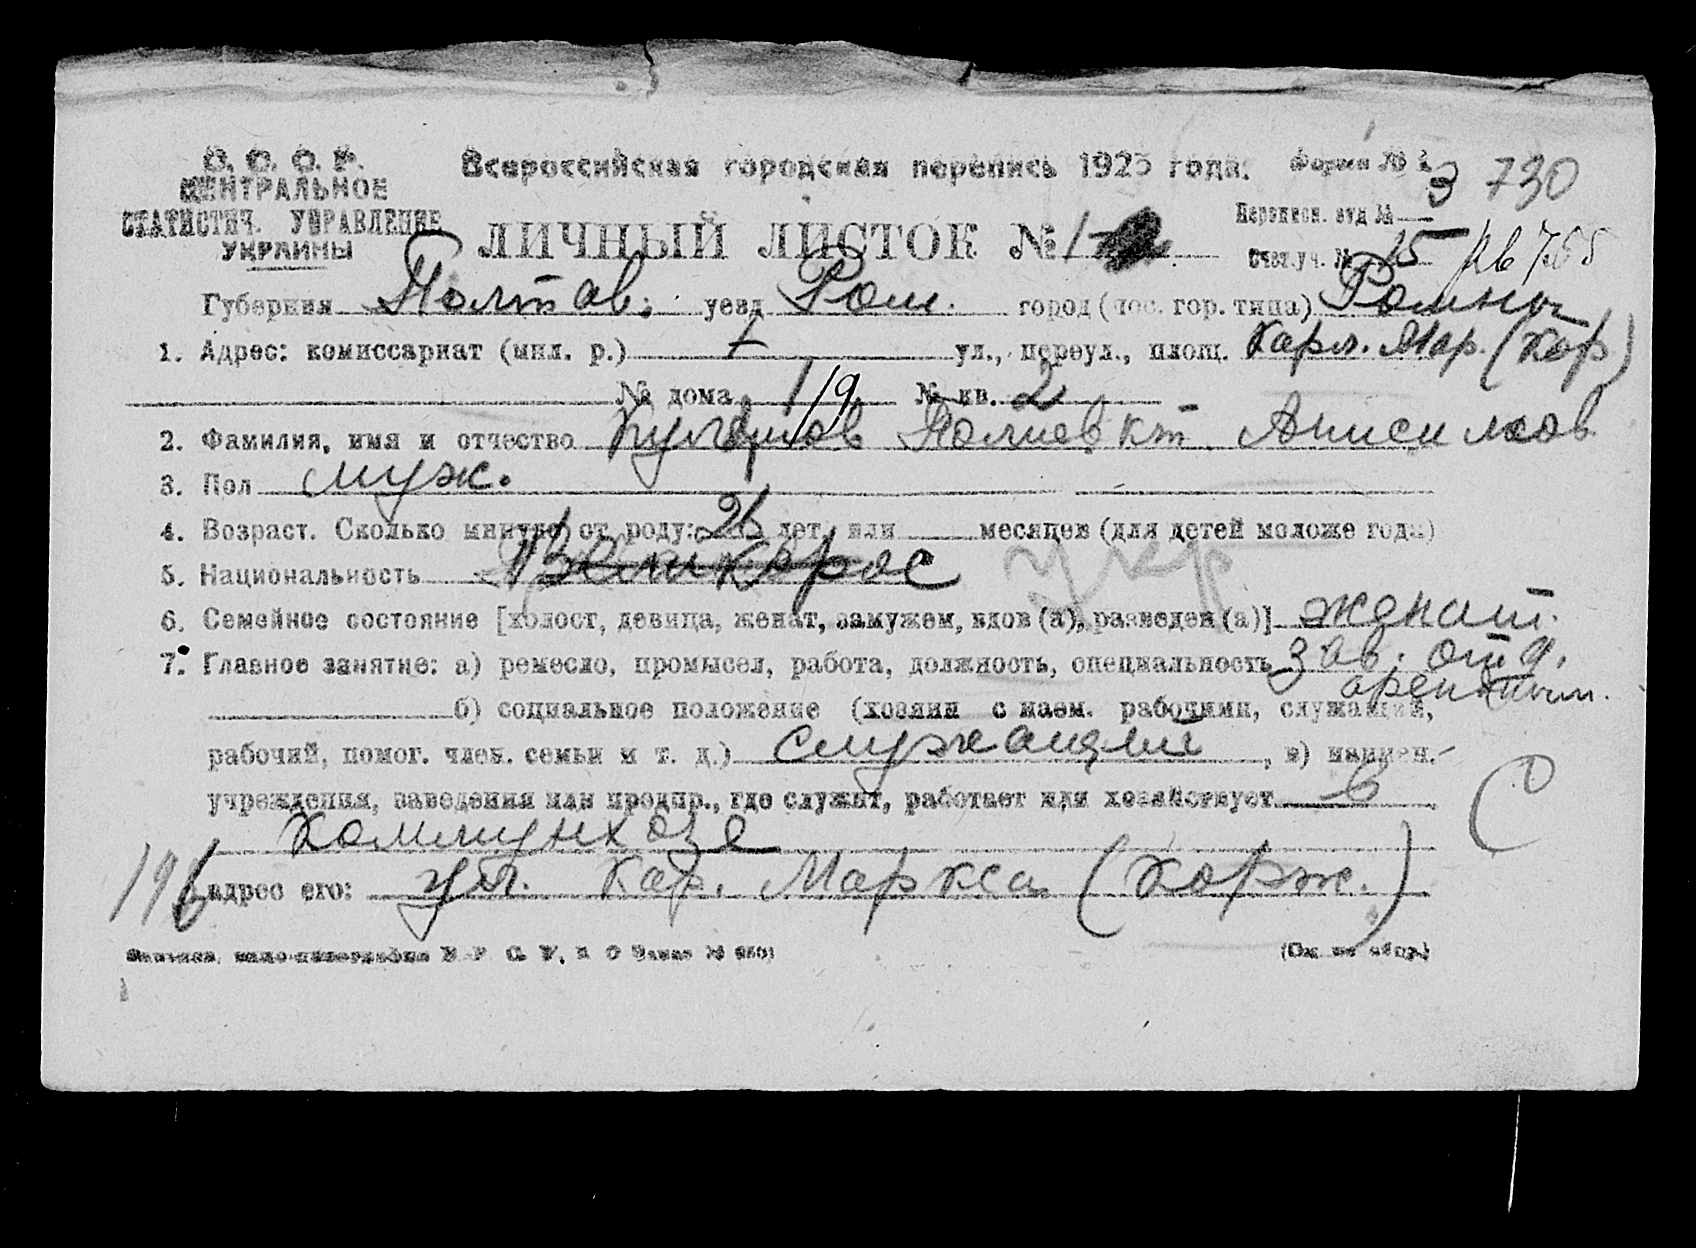 С. С. С. Р.
ЦЕНТРАЛЬНОЕ
СТАТИСТИЧ. УПРАВЛЕНИЕ
УКРАИНЫ
Всероссийская городская перепись 1923 года.
Форма № 1
3 730
ЛИЧНЫЙ ЛИСТОК № 1
Переписн. отд №
Счет.уч. № 15
Губерния Полтав. уезд Ром. город (пос. гор. типа) Ромны
1. Адрес: комиссариат (мил. р.) ул., переул., площ. Карл. Мар. (Кор)
№ дома 1/9 № кв. 2
2. Фамилия, имя и отчество Полиевкт Анисимов
3. Пол муж.
4. Возраст. Сколько минуло от роду: 26 лет, или месяцев (для детей моложе года)
5. Национальность Великорос укр
6. Семейное состояние [холост, девица, женат, замужем, вдов (а), разведен (а)] женат.
7. Главное занятие: а) ремесло, промысел, работа, должность, специальность зав. отд.
арендным.
б) социальное положение (хозяин с наем. рабочими, служащий,
рабочий, помог. член. семьи и т. д.) служащий, в) наимен.
учреждения, заведения или предпр., где служит, работает или хозяйствует в
Коммунхозе
196 адрес его: ул. Кар. Маркса (Корж.)
(См. на обор.)